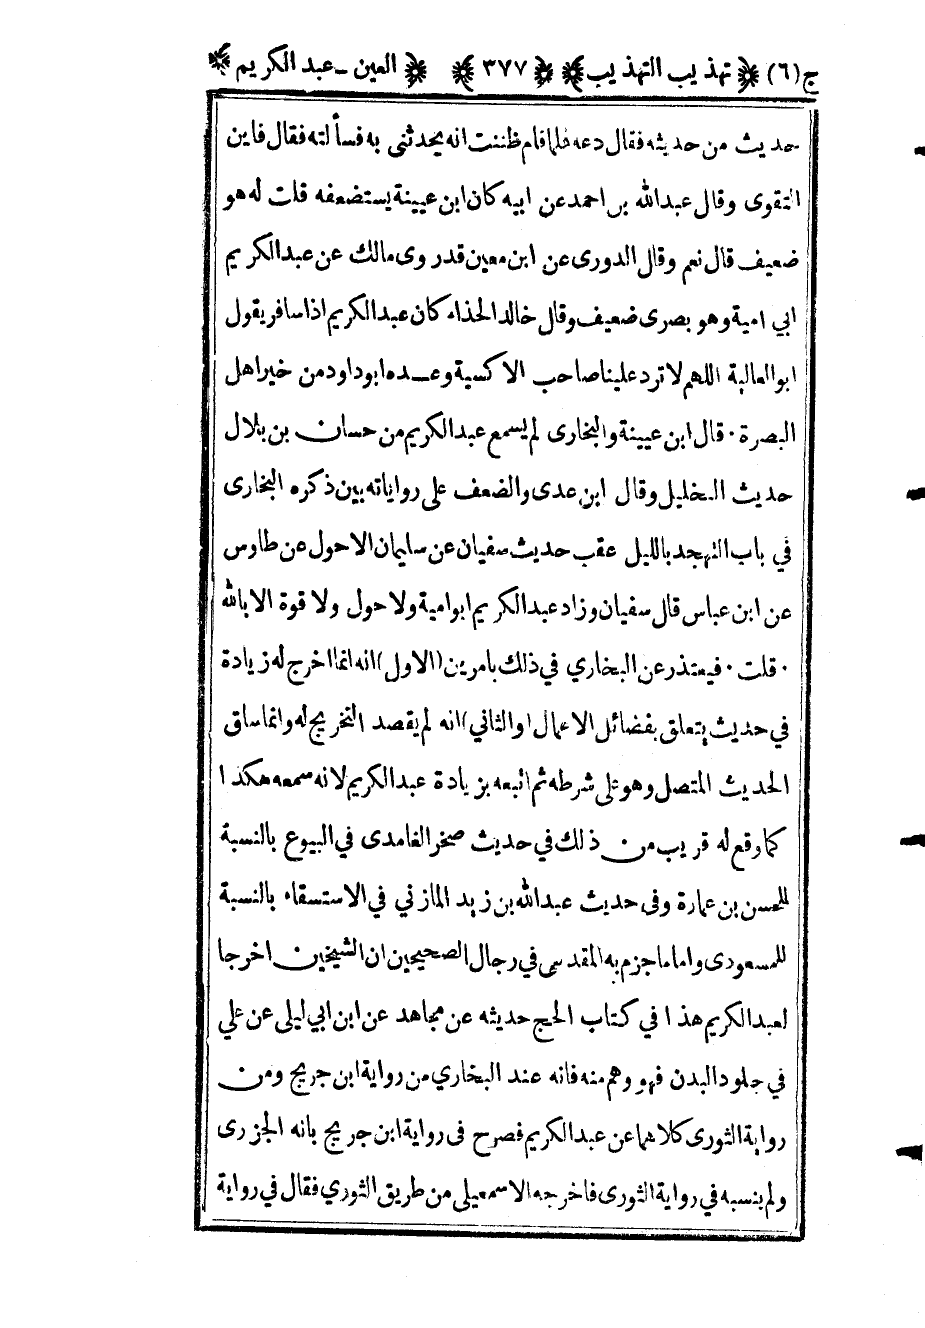 ج (٦) ﴿ تهذيب التهذيب ﴾ ﴿ ٣٧٧ ﴾ ﴿ العين - عبد الكريم ﴾
حديث من حديثه فقال دعه فلما قام ظننت انه يحدثنى به فسألته فقال فاين
التقوى وقال عبدالله بن احمد عن ابيه كان ابن عيينة يستضعفه قلت له هو
ضعيف قال نعم وقال الدورى عن ابن معين قد روى مالك عن عبد الكريم
ابي امية وهو بصرى ضعيف وقال خالد الحذاء كان عبد الكريم اذا سافر يقول
ابو العالية اللهم لا ترد علينا صاحب الاكسية وعده ابو داود من خير اهل
البصرة · قال ابن عيينة والبخارى لم يسمع عبد الكريم من حسان بن بلال
حديث التخليل وقال ابن عدى والضعف على رواياته بين ذكره البخارى
في باب التهجد بالليل عقب حديث سفيان عن سليمان الاحول عن طاوس
عن ابن عباس قال سفيان وزاد عبد الكريم ابو امية ولا حول ولا قوة الا بالله
· قلت · فيعتذر عن البخاري في ذلك بامرين (الاول) انه انما اخرج له زيادة
في حديث يتعلق بفضائل الاعمال (والثاني) انه لم يقصد التخريج له وانما ساق
الحديث المتصل وهو على شرطه ثم اتبعه بزيادة عبد الكريم لانه سمعه هكذا
كما وقع له قريب من ذلك في حديث صخر الغامدى في البيوع بالنسبة
للحسن بن عمارة وفى حديث عبدالله بن زيد المازني في الاستسقاء بالنسبة
للمسعودى واما ما جزم به المقدسي في رجال الصحيحين ان الشيخين اخرجا
لعبد الكريم هذا في كتاب الحج حديثه عن مجاهد عن ابن ابي ليلى عن علي
في جلود البدن فهو وهم منه فانه عند البخاري من رواية ابن جريج ومن
رواية الثورى كلاهما عن عبد الكريم فصرح فى رواية ابن جريج بانه الجزرى
ولم ينسبه في رواية الثورى فاخرجه الاسمعيلى من طريق الثوري فقال في رواية